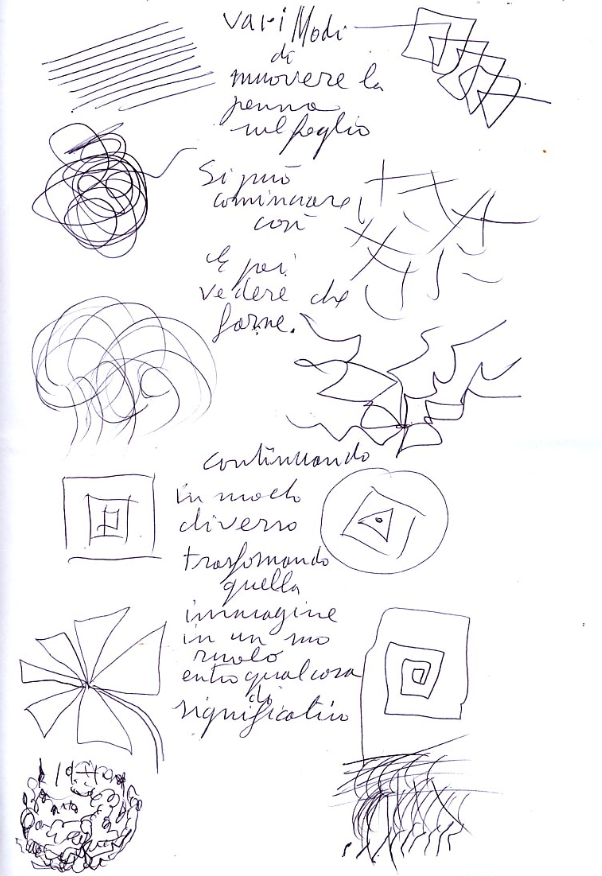 vari Modi
di
muovere la
penna
sul foglio
Si può
cominciare
così
E poi
vedere che
forme.
continuando
in modo
diverso
trasformando
quella
immagine
in un suo
ruolo
entro qualcosa
di
significativo